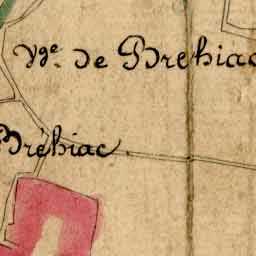 Vge. de Brehiac
Bréhiac